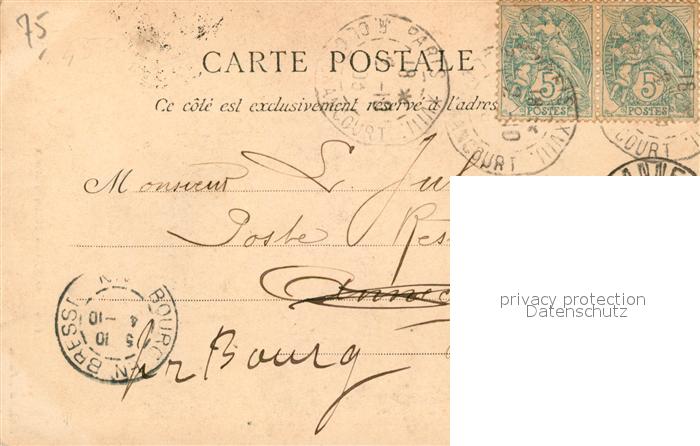 75
CARTE POSTALE
Ce côté est exclusivement réservé à l'adres
5 POSTES 5 POSTES
PARIS XVIII
Monsieur L. Jul
Poste Res
Annec
pr Bourg
BOURG EN BRESSE
5 10
4 -10
ANNE
privacy protection
Datenschutz